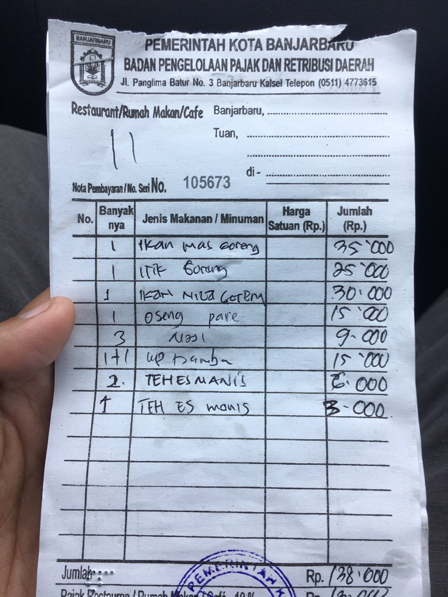 BANJARBARU
PEMERINTAH KOTA BANJARBARU
BADAN PENGELOLAAN PAJAK DAN RETRIBUSI DAERAH
Jl. Panglima Batur No. 3 Banjarbaru Kalsel Telepon (0511) 4773615
Restaurant/Rumah Makan/Cafe
Banjarbaru,
Tuan,
11
di -
Nota Pembayaran/No. Seri No. 105673
No. Banyak nya Jenis Makanan / Minuman Harga Satuan (Rp.) Jumlah (Rp.)
1 Ikan mas Goreng 35.000
1 ITIK Goreng 25.000
1 IKAN NILA GORENG 30.000
1 oseng pare 15.000
3 Nasi 9.000
1+1 15.000
2. TEH ES MANIS 6.000
1 TEH ES manis 3.000
Jumlah Rp. 138.000
PEMERINTAH K
Pajak Restauran / Rumah 10 %